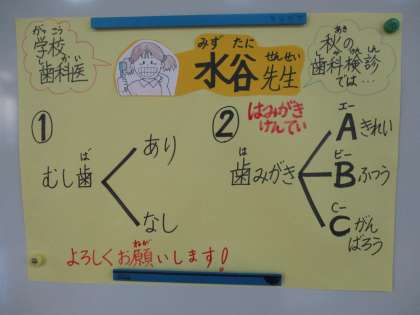 学校
歯科医
がっこう
しかい
みずたに せんせい
水谷先生
あき
秋の
歯科検診
では…
はみがき
けんてい
①
むし歯
ば
あり
なし
②
は
歯みがき
エー
Aきれい
ビー
Bふつう
シー
Cがん
ばろう
ねが
よろしくお願いします!